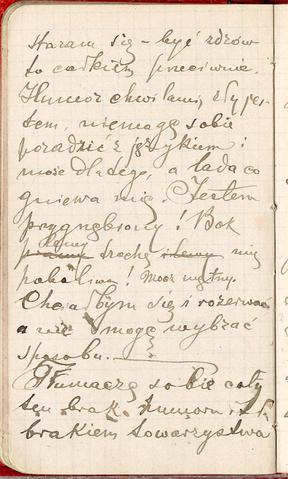 Staram się – być zdrów
to całkiem przeciwnie.
Humor chwilami zły jes-
tem, niemogę sobie
poradzić z językiem i
może dlatego, a lada co
gniewa mię. Jestem
przygnębiony! Bok
lewy trochę mię
pobolewa! Mocz mętny.
Chciałbym się i rozerwać
a nie mogę wybrać
sposobu.
Tłumaczę sobie cały
ten brak humoru
brakiem towarzystwa